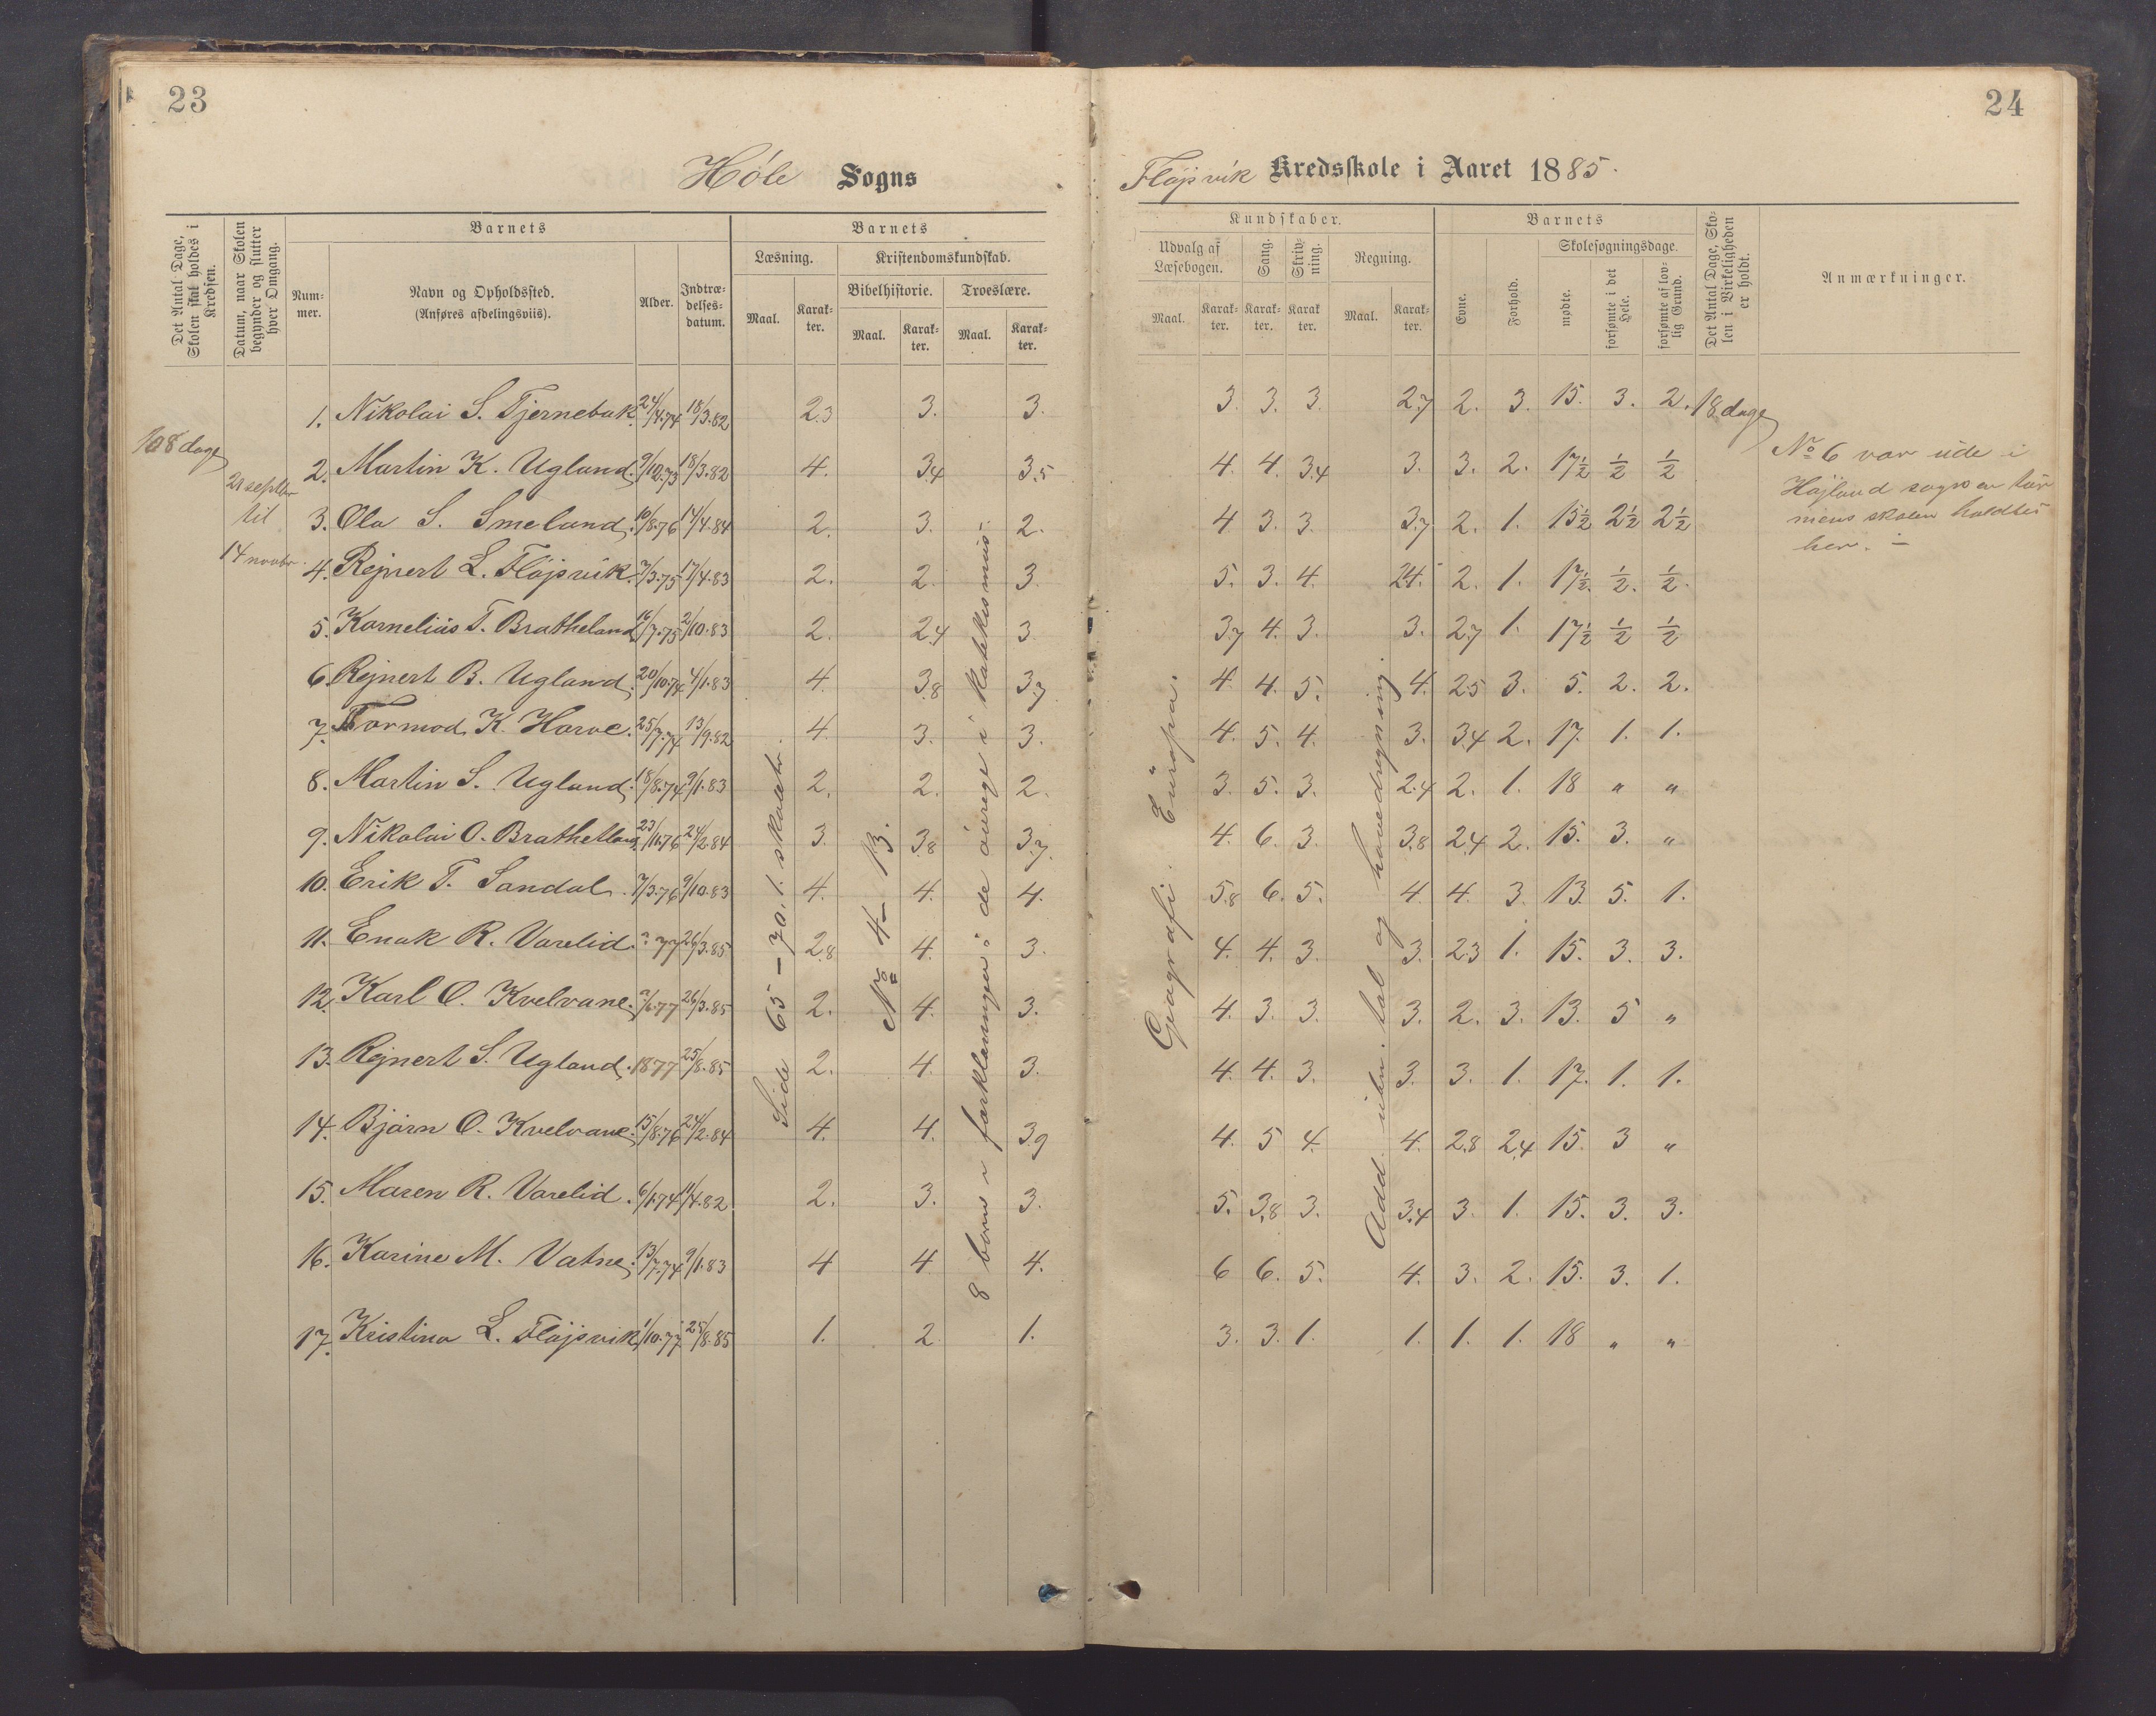 23
Höle Sogns
Det Antal Dage, Skolen skal holdes i Kredsen.
Datum, naar Skolen begynder og slutter hver Omgang.
Barnets
Nummer.
Navn og Opholdssted.
(Anføres afdelingsviis).
Alder.
Indtrædelsesdatum.
Barnets
Læsning.
Kristendomskundskab.
Bibelhistorie. Troeslære.
Maal. Karakter. Maal. Karakter. Maal. Karakter.
108 dage
21 septbr
til
14 novbr.
1. Nikolai S. Tjernebak. 24/4.74 18/3.82 2.3 3. 3.
2. Martin K. Ugland. 9/10.73 18/3.82 4. 3.4 3.5
3. Ola S. Smeland. 10/8.76 14/4.84 2. 3. 2.
4. Rejnert L. Flöjsvik. 7/3.75 17/4.83 2. 2. 3.
5. Kornelius T. Bratheland 16/7.75 2/10.83 2. 2.4 3.
6. Rejnert B. Ugland. 20/10.74 4/1.83 4. 3.8 3.7
7. Tormod K. Harve. 25/7.74 13/9.82 4. 3. 3.
8. Martin S. Ugland. 18/8.74 9/1.83 2. 2. 2.
9. Nikolai O. Brathetland 23/11.76 24/2.84 3. 3.8 3.7
10. Erik T. Sandal. 7/3.76 9/10.83 4. 4. 4.
11. Enok R. Varelid. 77 26/3.85 2.8 4. 3.
12. Karl O. Kvelvane. 77 26/3.85 2. 4. 3.
13. Rejnert S. Ugland. 1877 25/8.85 2. 4. 3.
14. Bjørn O. Kvelvane. 15/8.76 24/2.84 4. 4. 3.9
15. Maren R. Varelid. 6/1.74 11/4.82 2. 3. 3.
16. Karine M. Vatne. 13/7.74 9/1.83 4 4 4.
17. Kristina L. Flöjsvik 1/10.77 25/8.85 1. 2 1.
Side 65 – 70. 1. skoletr.
No 4 – 13.
8 børn i forklaringen; de øvrege i katekismus.
24
Flöjsvik Kredsskole i Aaret 1885.
Kundskaber.
Udvalg af Læsebogen.
Sang.
Skrivning.
Regning.
Maal. Karakter. Karakter. Karakter. Maal. Karakter.
Barnets
Evne.
Forhold.
Skolesøgningsdage.
mødte.
forsømte i det Hele.
forsømte af lovlig Grund.
Det Antal Dage, Skolen i Virkeligheden er holdt.
Anmærkninger.
3. 3. 3. 2.7 2. 3. 15. 3. 2. 18 dage
4. 4. 3.4 3. 3. 2. 17½ ½ ½
4 3. 3. 3.7 2. 1. 15½ 2½ 2½
5. 3. 4. 2.4. 2. 1. 17½. ½. ½.
3.7 4. 3. 3. 2.7 1. 17½ ½ ½
4. 4. 5. 4. 2.5 3. 5. 2. 2.
4. 5. 4. 3. 3.4 2. 17. 1. 1.
3. 5. 3. 2.4 2. 1. 18 " "
4. 6. 3. 3.8 2.4 2. 15. 3. "
5.8 6. 5. 4 4. 3. 13. 5. 1.
4. 4. 3. 3. 2.3 1. 15. 3. 3.
4. 3. 3. 3. 2. 3. 13. 5 "
4. 4. 3. 3. 3. 1. 17. 1. 1.
4. 5 4. 4. 2.8 2.4 15. 3 "
5. 3.8 3. 3.4 3. 1. 15. 3. 3.
6 6. 5. 4. 3. 2. 15. 3. 1.
3. 3. 1. 1. 1. 1. 18 " "
Geografi: Európa.
Add. uben. tal og hovedregning
No 6 var ude i
Höjland sogn en tur
mens skolen holdtes
her. –